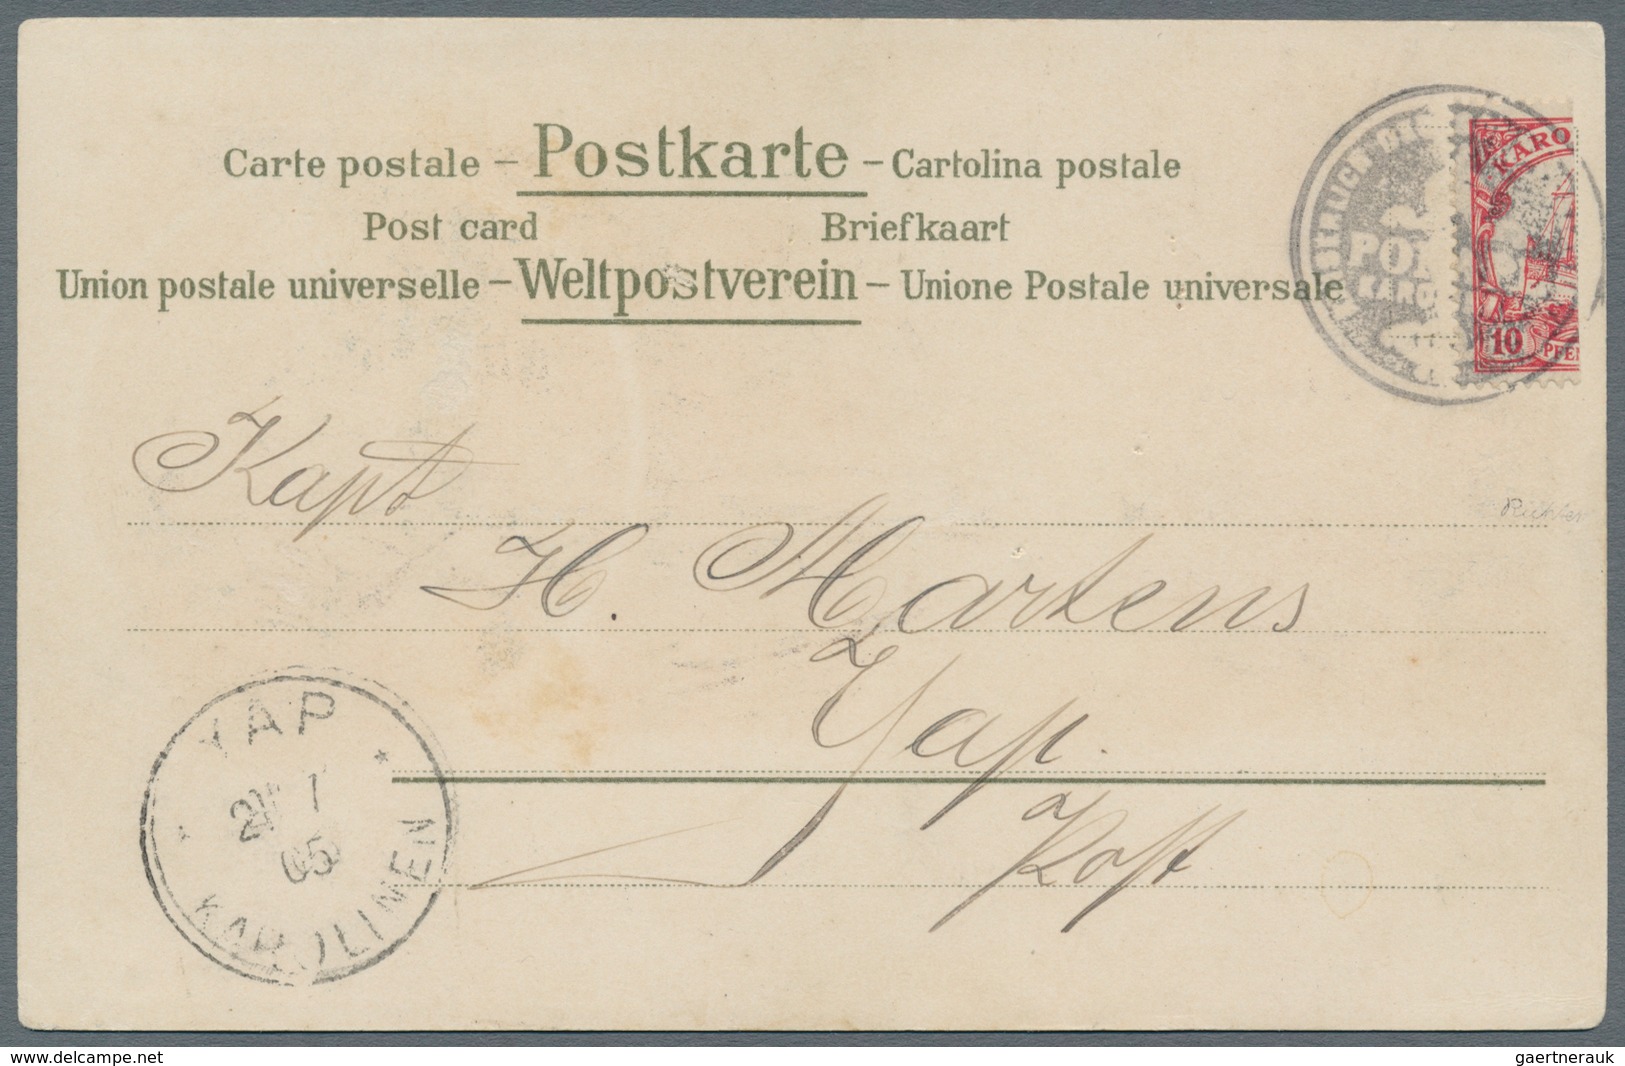 Carte postale – Postkarte – Cartolina postale
Post card Briefkaart
Union postale universelle – Weltpostverein – Unione Postale universale
KARO
10 PFEN
Kapt
Richter
H. Martens
Yap.
YAP
05
KAROLINEN
delcampe.net
gaertnerauk